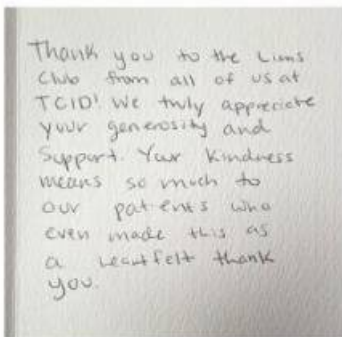 Thank you to the Lions
Club from all of us at
TCID! We truly appreciate
your generosity and
Support. Your Kindness
means so much to
our patients who
even made this as
a heartfelt thank
you.